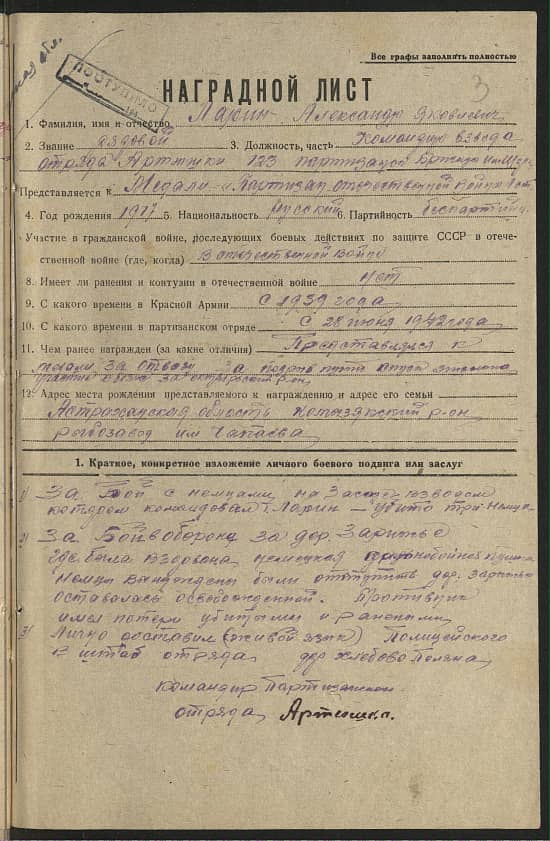 Все графы заполнять полностью
ПОСТУПИЛО
3
НАГРАДНОЙ ЛИСТ
1. Фамилия, имя и отчество Ларин Александр Яковлевич
2. Звание рядовой 3. Должность, часть Командир взвода
отряда Артюшки 123 партизанской
Представляется к Медали „Партизан отечественной войны
4. Год рождения 1917 5. Национальность русский 6. Партийность беспартийн
Участие в гражданской войне, последующих боевых действиях по защите СССР в отече-
ственной войне (где, когда) В отечественной войне
8. Имеет ли ранения и контузии в отечественной войне Нет
9. С какого времени в Красной Армии С 1939 года
10. С какого времени в партизанском отряде С 28 июня 1942 года
11. Чем ранее награжден (за какие отличия) Представлялся к
медали За отвагу За подрыв
12. Адрес места рождения представляемого к награждению и адрес его семьи
Астраханская область р-он
рыбозавод им Чапаева
1. Краткое, конкретное изложение личного боевого подвига или заслуг
1) За Бой с немцами на взводом
котором командовал т. Ларин — убито три немца
2) За Бой в обороне за дер. Заритье
где была взорвана немецкая пушка
Немцы вынуждены были отступить дер. Заритье
оставалась освобожденной. Противник
имел потери убитыми и ранеными
3) Лично доставил (живой язык) Полицейского
в штаб отряда дер Хлебово Поляна
командир Партизанском
отряда Артюшка.